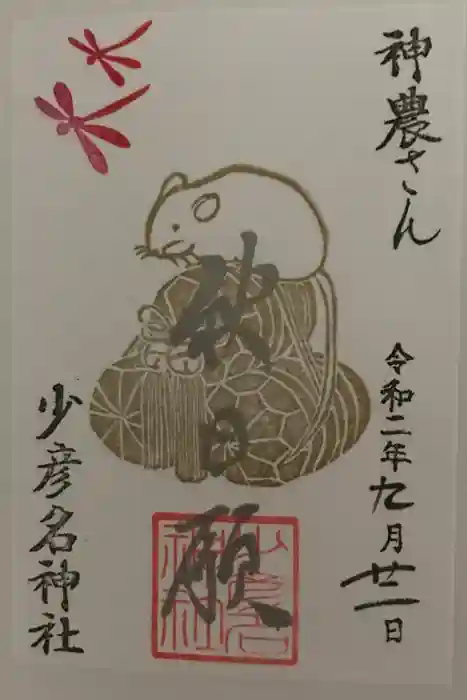 神農さん
令和二年九月廿一日
秋日願
少彦名
神社
少彦名神社